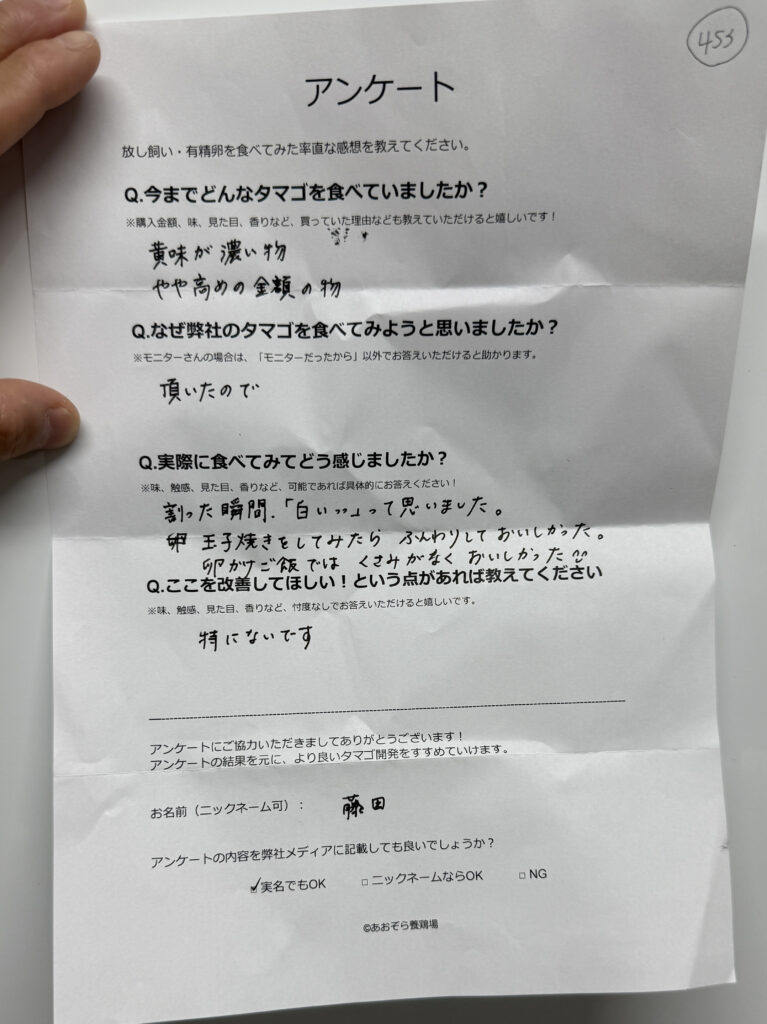 455
アンケート
放し飼い・有精卵を食べてみた率直な感想を教えてください。
Q.今までどんなタマゴを食べていましたか？
※購入金額、味、見た目、香りなど、買っていた理由なども教えていただけると嬉しいです！
黄味が濃い物
やや高めの金額の物
Q.なぜ弊社のタマゴを食べてみようと思いましたか？
※モニターさんの場合は、「モニターだったから」以外でお答えいただけると助かります。
頂いたので
Q.実際に食べてみてどう感じましたか？
※味、触感、見た目、香りなど、可能であれば具体的にお答えください！
割った瞬間、「白いッ」って思いました。
卵 玉子焼きをしてみたら ふんわりしておいしかった。
卵かけご飯では くさみがなく おいしかった
Q.ここを改善してほしい！という点があれば教えてください
※味、触感、見た目、香りなど、忖度なしでお答えいただけると嬉しいです。
特にないです
アンケートにご協力いただきましてありがとうございます！
アンケートの結果を元に、より良いタマゴ開発をすすめていけます。
お名前（ニックネーム可）： 藤田
アンケートの内容を弊社メディアに記載しても良いでしょうか？
✓実名でもOK □ニックネームならOK □NG
©あおぞら養鶏場